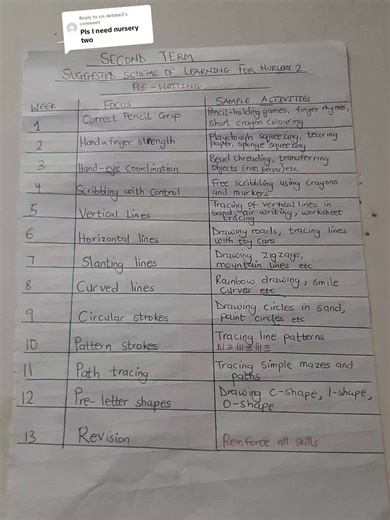 Reply to sis.debbie2's
comment
Pls I need nursery
two
SECOND TERM
SUGGESTED SCHEME OF LEARNING FOR NURSERY 2
PRE-WRITING
WEEK FOCUS SAMPLE ACTIVITIES
1 Correct Pencil Grip Pencil-holding games, finger rhymes,
short crayon colouring
2 Hand n finger strength Playdough squeezing, tearing
paper, sponge squeezing
3 Hand-eye Coordination Bead threading, transferring
objects (rice, beans) etc
4 Scribbling with Control Free scribbling using crayons
and markers
5 Vertical Lines Tracing of vertical lines in
sand, air writing, worksheet
tracing
6 Horizontal lines Drawing roads, tracing lines
with toy cars
7 Slanting lines Drawing zigzags,
mountain lines etc
8 Curved lines Rainbow drawing, smile
curves etc
9 Circular strokes Drawing circles in sand,
paint circles etc
10 Pattern strokes Tracing line patterns
11 Path tracing Tracing simple mazes and
paths
12 Pre-letter shapes Drawing C-shape, l-shape,
O-shape
13 Revision Reinforce all skills